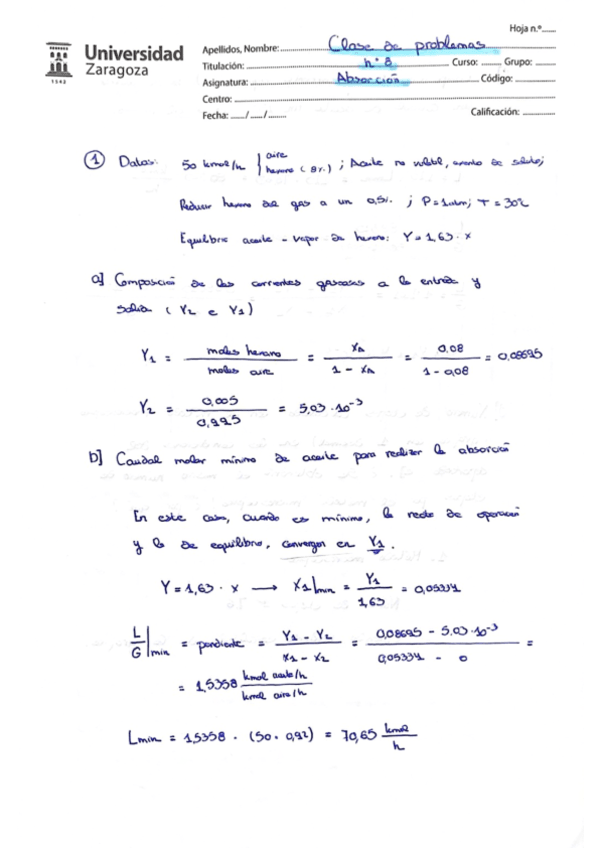 Hoja n.º......
Universidad
Zaragoza
1542
Apellidos, Nombre: Clase de problemas
Titulación: nº 8 Curso: ...... Grupo: ......
Asignatura: Absorción Código: ......
Centro:
Fecha: ....../....../...... Calificación: ......
① Datos: 50 kmol/h { aire hexano (8%) ; Aceite no volátil, exento de soluto;
Reducir hexano del gas a un 0,5%. ; P = 1 atm; T = 30ºC
Equilibrio aceite - vapor de hexano: Y = 1,63 · x
a] Composición de las corrientes gaseosas a la entrada y
salida (Y2 e Y1)
Y1 = moles hexano / moles aire = XA / 1 - XA = 0,08 / 1 - 0,08 = 0,08695
Y2 = 0,005 / 0,995 = 5,03 · 10⁻³
b] Caudal molar mínimo de aceite para realizar la absorción
En este caso, cuando es mínimo, la recta de operación
y la de equilibrio, convergen en Y1.
Y = 1,63 · x → X1|min = Y1 / 1,63 = 0,05334
L/G|min = pendiente = Y1 - Y2 / X1 - X2 = 0,08695 - 5,03 · 10⁻³ / 0,05334 - 0 =
= 1,5358 kmol aceite/h / kmol aire/h
Lmin = 1,5358 · (50 · 0,92) = 70,65 kmol / h